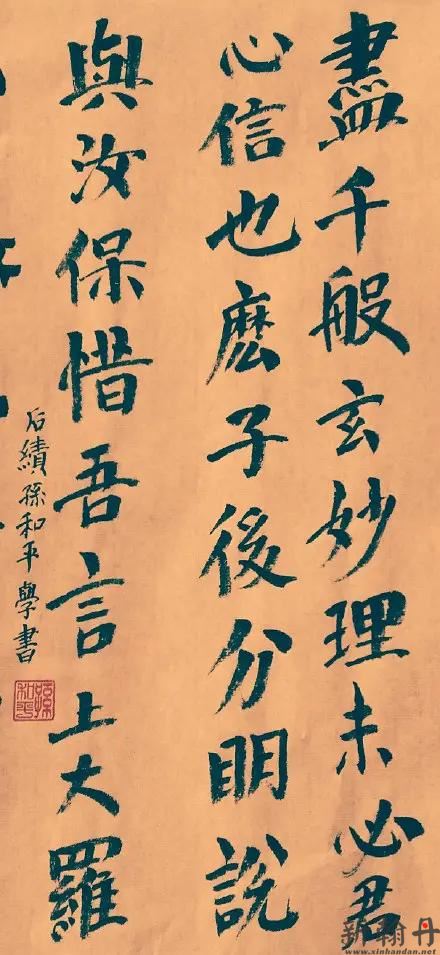 盡千般玄妙理未必君
心信也麽子後分明說
與汝保惜吾言上大羅
后績孫和平學書
孫和平
新翰丹
www.xinhandan.net